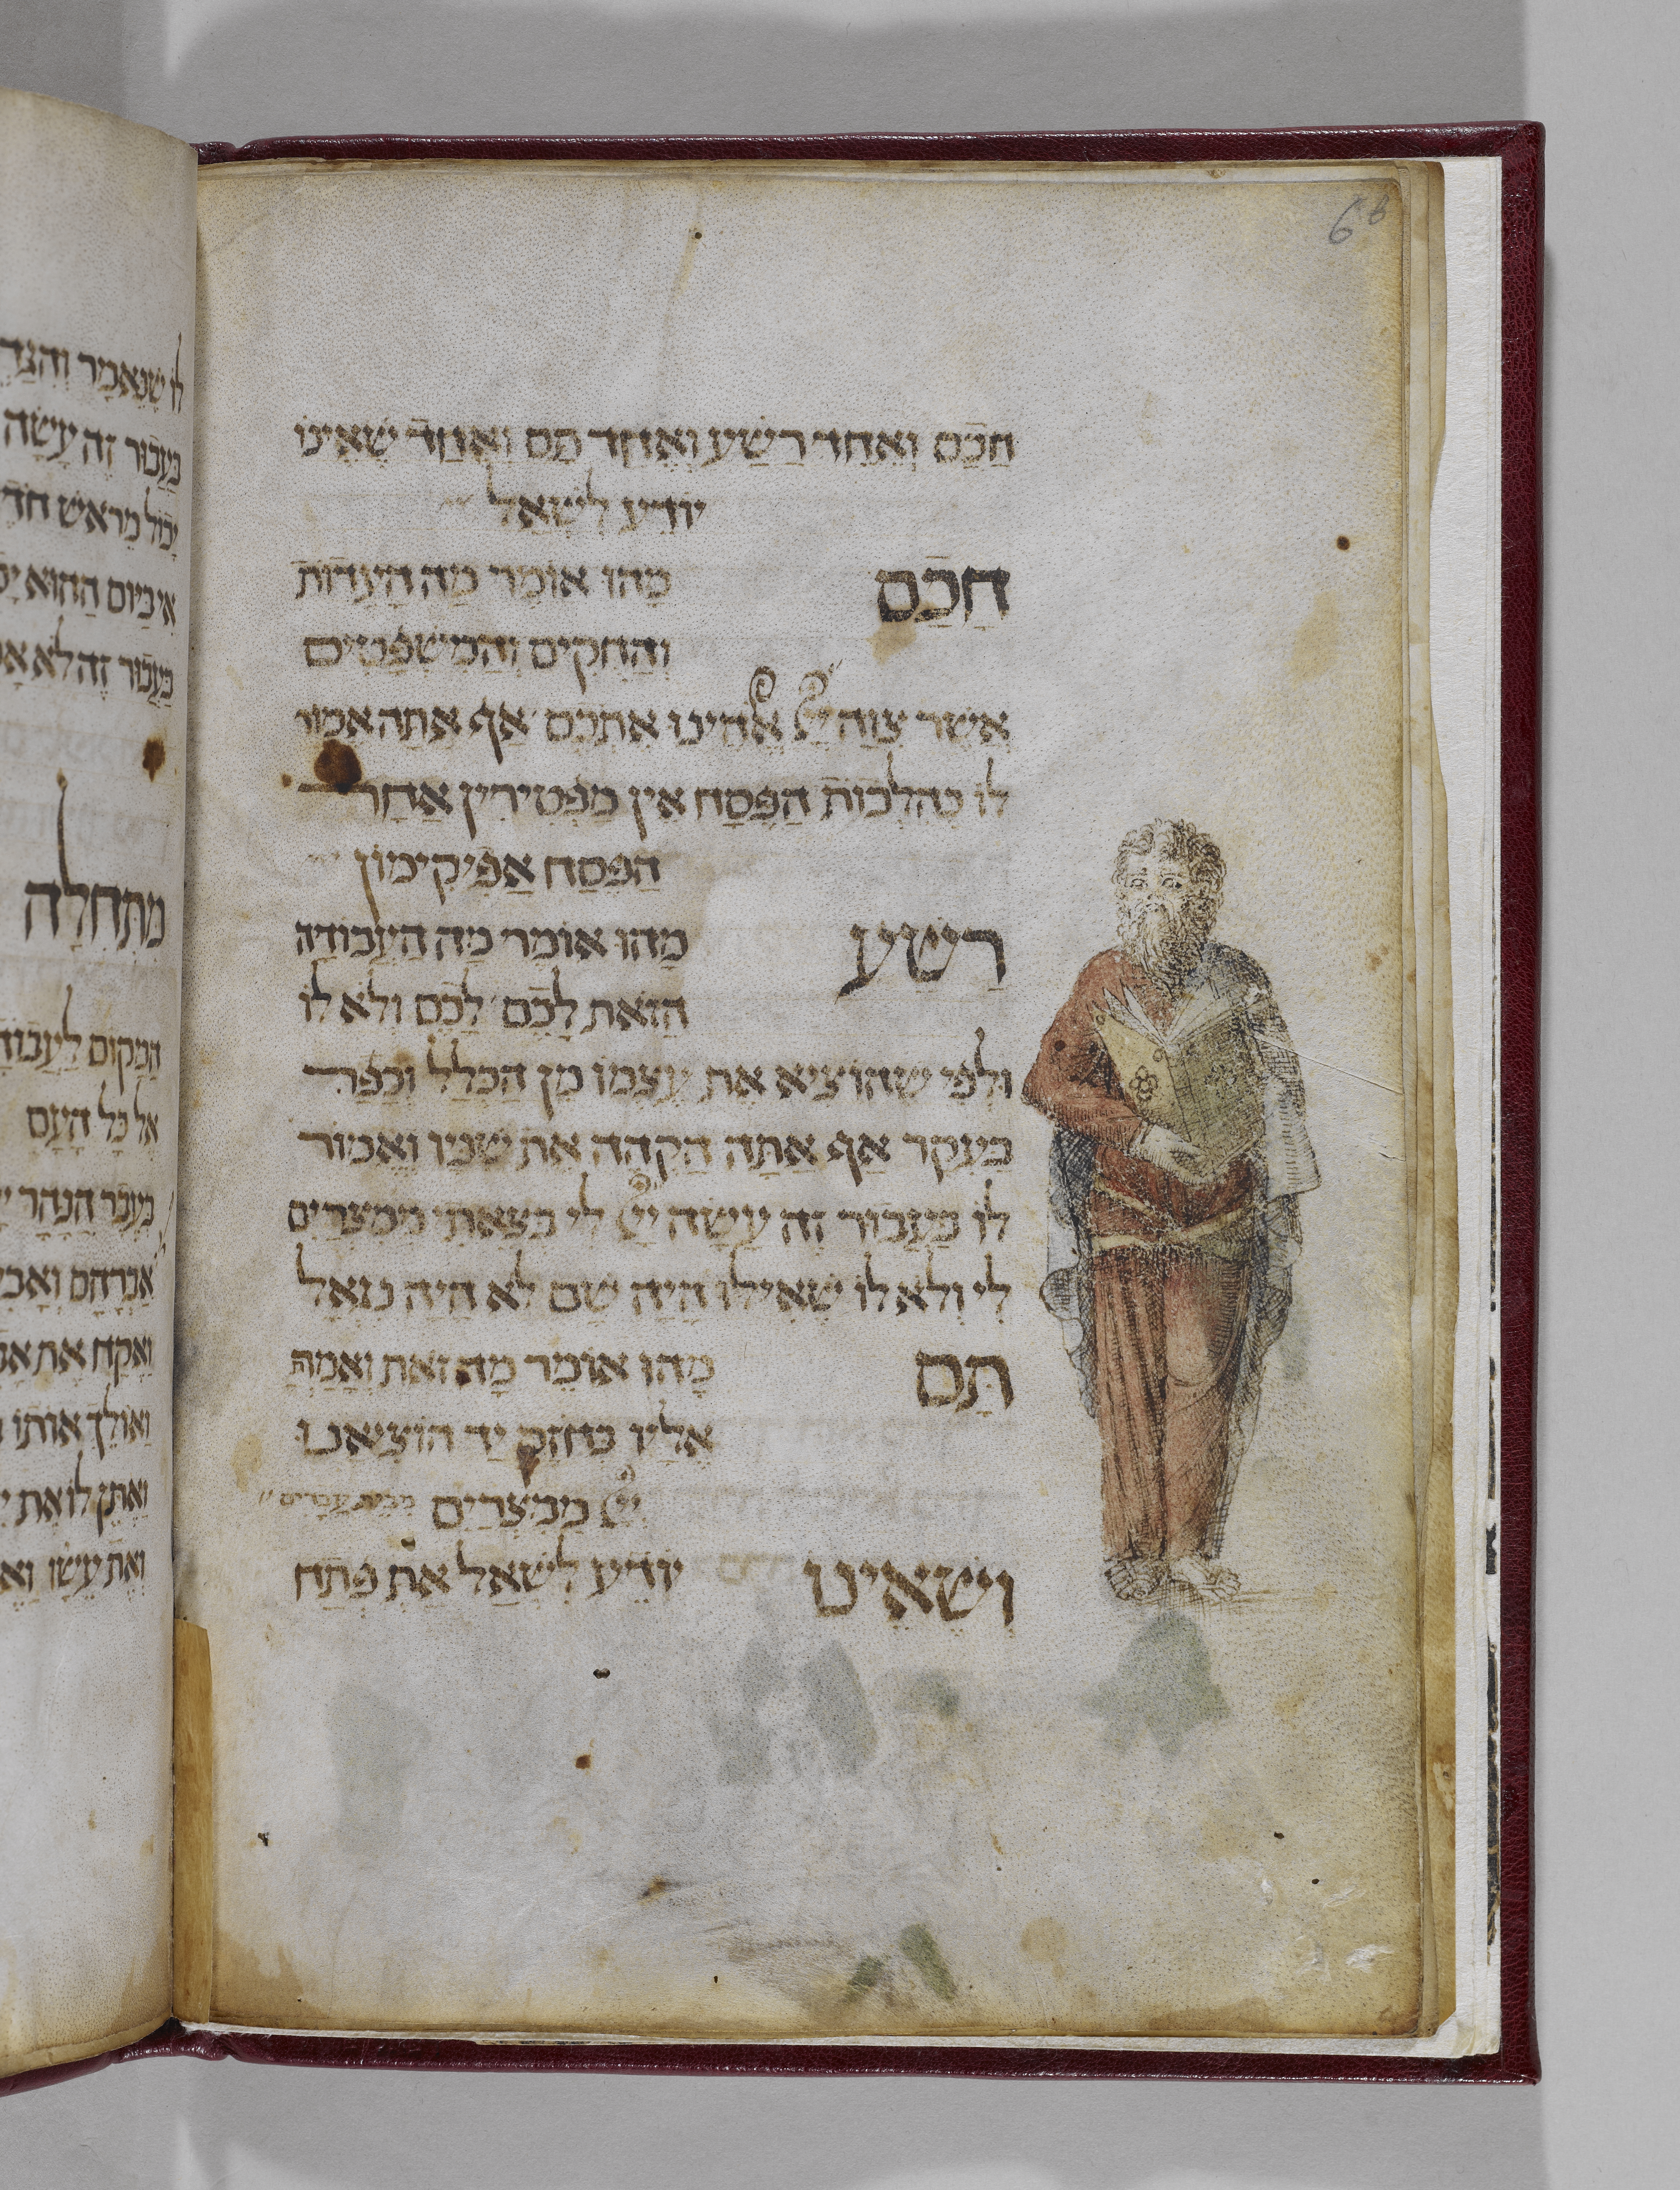 6b
חכם ואחד רשע ואחד תם ואחד שאינו
יודע לשאל
חכם מהו אומר מה העדות
והחקים והמשפטים
אשר צוה יי אלהינו אתכם אף אתה אמור
לו כהלכות הפסח אין מפטירין אחר
הפסח אפיקימון
רשע מהו אומר מה העבודה
הזאת לכם לכם ולא לו
ולפי שהוציא את עצמו מן הכלל וכפר
בעקר אף אתה הקהה את שניו ואמור
לו בעבור זה עשה יי לי בצאתי ממצרים
לי ולא לו שאילו היה שם לא היה נגאל
תם מהו אומר מה זאת ואמרת
אליו בחוזק יד הוציאנו
יי ממצרים מבית עבדים
ושאינו יודע לשאל את פתח
לו שנאמר והגד
בעבור זה עשה
יכול מראש חד
אי ביום ההוא
בעבור זה לא
מתחלה
המקום לעבוד
אל כל העם
בעבר הנהר
אברהם ואב
ואקח את
ואולך אותו
ואתן לו את
ואת עשו